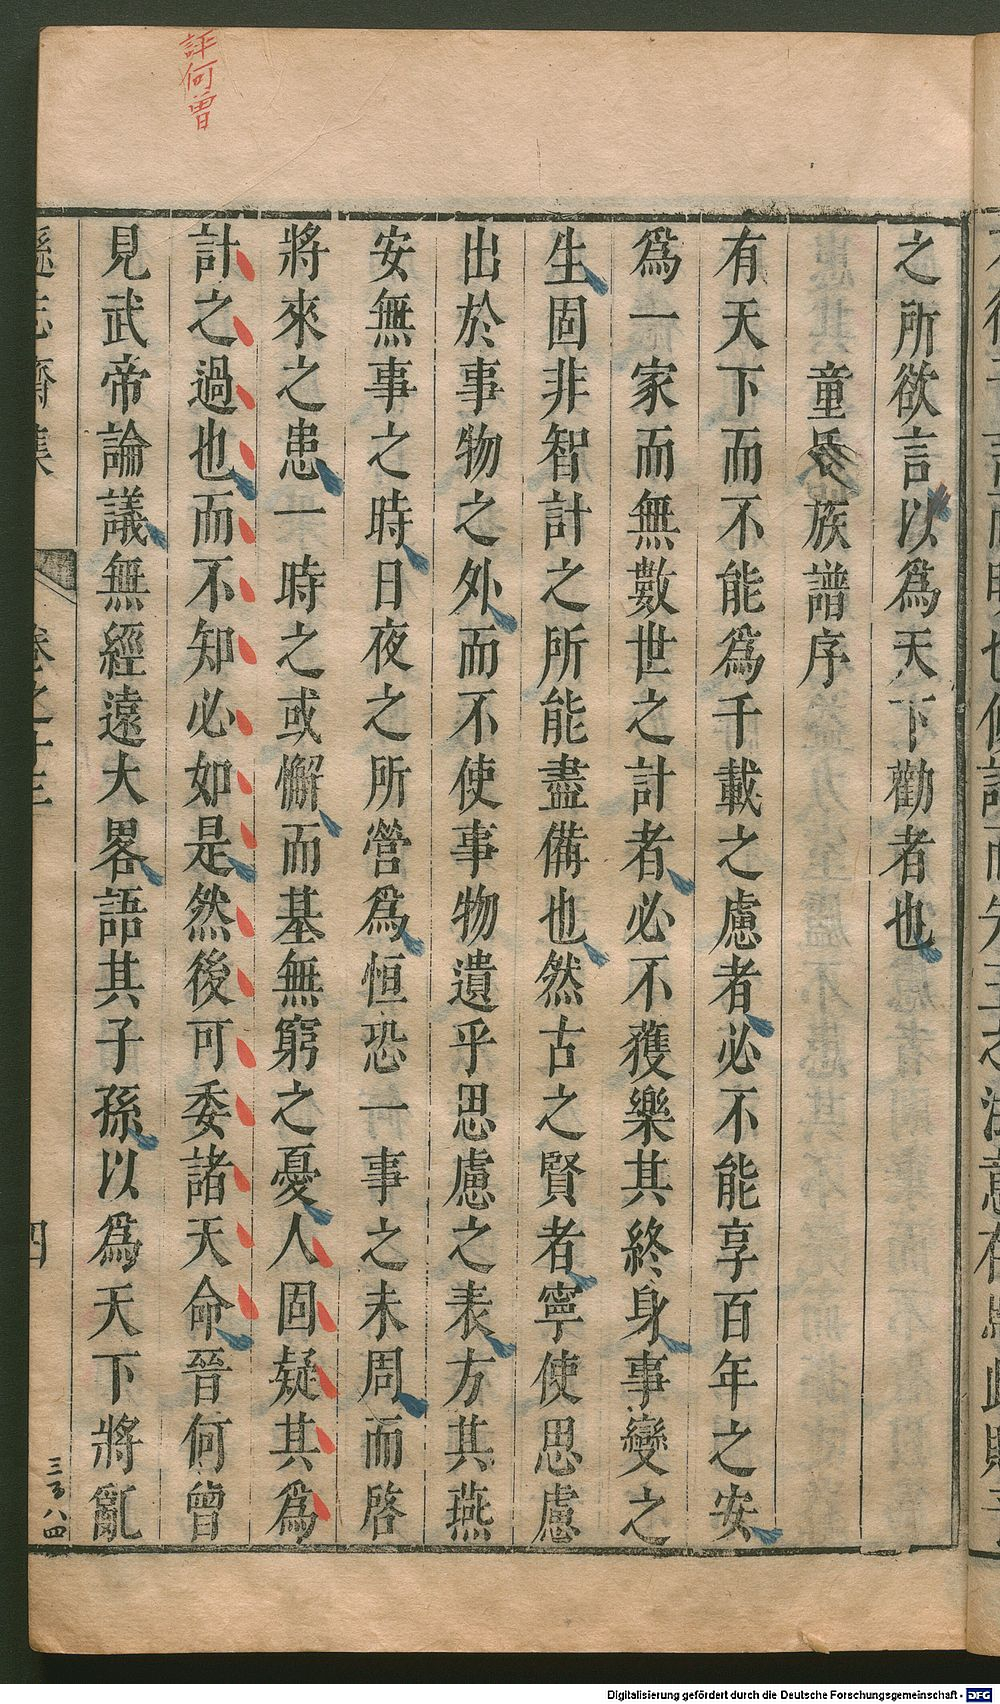 評何曾
之所欲言以爲天下勸者也
童氏族譜序
有天下而不能爲千載之慮者必不能享百年之安
爲一家而無數世之計者必不獲樂其終身事變之
生固非智計之所能盡備也然古之賢者寧使思慮
出於事物之外而不使事物遺乎思慮之表方其燕
安無事之時日夜之所營爲恒恐一事之未周而啓
將來之患一時之或懈而基無窮之憂人固疑其爲
計之過也而不知必如是然後可委諸天命晉何曾
見武帝論議無經遠大畧語其子孫以爲天下將亂
遜志齋集 卷之十三 四
三百八四
Digitalisierung gefördert durch die Deutsche Forschungsgemeinschaft - DFG